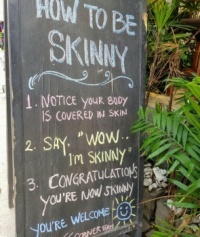 HOW TO BE
SKINNY
1. NOTICE YOUR BODY
IS COVERED IN SKIN
2. SAY, "WOW..
I'M SKINNY"
3. CONGRATULATIONS
YOU'RE NOW SKINNY
YOU'RE WELCOME
CORNER